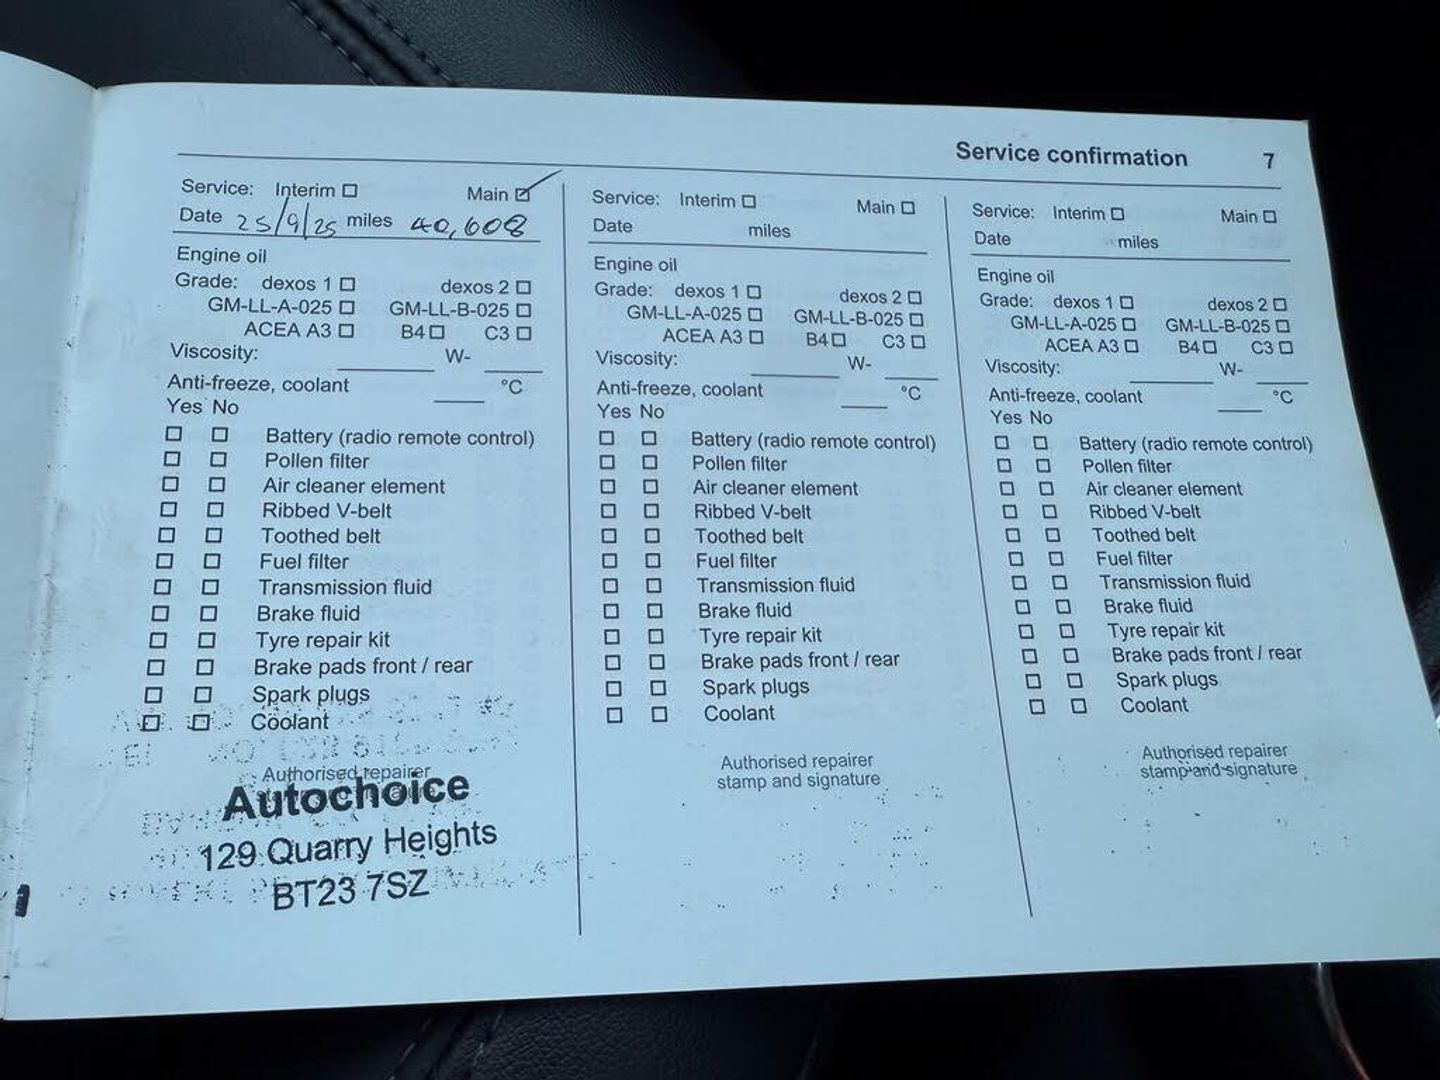 Service confirmation 7
Service: Interim ☐ Main ☑
Date 25/9/25 miles 40,608
Engine oil
Grade: dexos 1 ☐ dexos 2 ☐
GM-LL-A-025 ☐ GM-LL-B-025 ☐
ACEA A3 ☐ B4 ☐ C3 ☐
Viscosity: ____ W- ____
Anti-freeze, coolant ____ °C
Yes No
☐ ☐ Battery (radio remote control)
☐ ☐ Pollen filter
☐ ☐ Air cleaner element
☐ ☐ Ribbed V-belt
☐ ☐ Toothed belt
☐ ☐ Fuel filter
☐ ☐ Transmission fluid
☐ ☐ Brake fluid
☐ ☐ Tyre repair kit
☐ ☐ Brake pads front / rear
☐ ☐ Spark plugs
☐ ☐ Coolant
Authorised repairer
Autochoice
129 Quarry Heights
BT23 7SZ
Service: Interim ☐ Main ☐
Date miles
Engine oil
Grade: dexos 1 ☐ dexos 2 ☐
GM-LL-A-025 ☐ GM-LL-B-025 ☐
ACEA A3 ☐ B4 ☐ C3 ☐
Viscosity: ____ W- ____
Anti-freeze, coolant ____ °C
Yes No
☐ ☐ Battery (radio remote control)
☐ ☐ Pollen filter
☐ ☐ Air cleaner element
☐ ☐ Ribbed V-belt
☐ ☐ Toothed belt
☐ ☐ Fuel filter
☐ ☐ Transmission fluid
☐ ☐ Brake fluid
☐ ☐ Tyre repair kit
☐ ☐ Brake pads front / rear
☐ ☐ Spark plugs
☐ ☐ Coolant
Authorised repairer
stamp and signature
Service: Interim ☐ Main ☐
Date miles
Engine oil
Grade: dexos 1 ☐ dexos 2 ☐
GM-LL-A-025 ☐ GM-LL-B-025 ☐
ACEA A3 ☐ B4 ☐ C3 ☐
Viscosity: ____ W- ____
Anti-freeze, coolant ____ °C
Yes No
☐ ☐ Battery (radio remote control)
☐ ☐ Pollen filter
☐ ☐ Air cleaner element
☐ ☐ Ribbed V-belt
☐ ☐ Toothed belt
☐ ☐ Fuel filter
☐ ☐ Transmission fluid
☐ ☐ Brake fluid
☐ ☐ Tyre repair kit
☐ ☐ Brake pads front / rear
☐ ☐ Spark plugs
☐ ☐ Coolant
Authorised repairer
stamp and signature